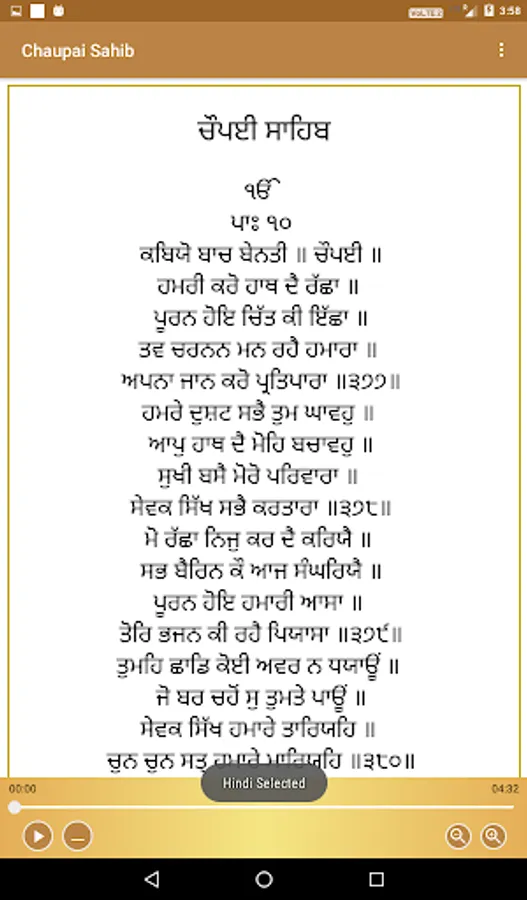 VOLTE 2 3:58
Chaupai Sahib
ਚੌਪਈ ਸਾਹਿਬ
ੴ
ਪਾਃ ੧੦
ਕਬਿਯੋ ਬਾਚ ਬੇਨਤੀ ॥ ਚੌਪਈ ॥
ਹਮਰੀ ਕਰੋ ਹਾਥ ਦੈ ਰੱਛਾ ॥
ਪੂਰਨ ਹੋਇ ਚਿੱਤ ਕੀ ਇੱਛਾ ॥
ਤਵ ਚਰਨਨ ਮਨ ਰਹੈ ਹਮਾਰਾ ॥
ਅਪਨਾ ਜਾਨ ਕਰੋ ਪ੍ਰਤਿਪਾਰਾ ॥੩੭੭॥
ਹਮਰੇ ਦੁਸ਼ਟ ਸਭੈ ਤੁਮ ਘਾਵਹੁ ॥
ਆਪੁ ਹਾਥ ਦੈ ਮੋਹਿ ਬਚਾਵਹੁ ॥
ਸੁਖੀ ਬਸੈ ਮੋਰੋ ਪਰਿਵਾਰਾ ॥
ਸੇਵਕ ਸਿੱਖ ਸਭੈ ਕਰਤਾਰਾ ॥੩੭੮॥
ਮੋ ਰੱਛਾ ਨਿਜੁ ਕਰ ਦੈ ਕਰਿਯੈ ॥
ਸਭ ਬੈਰਿਨ ਕੌ ਆਜ ਸੰਘਰਿਯੈ ॥
ਪੂਰਨ ਹੋਇ ਹਮਾਰੀ ਆਸਾ ॥
ਤੋਰਿ ਭਜਨ ਕੀ ਰਹੈ ਪਿਯਾਸਾ ॥੩੭੯॥
ਤੁਮਹਿ ਛਾਡਿ ਕੋਈ ਅਵਰ ਨ ਧਯਾਊਂ ॥
ਜੋ ਬਰ ਚਹੋਂ ਸੁ ਤੁਮਤੇ ਪਾਊਂ ॥
ਸੇਵਕ ਸਿੱਖ ਹਮਾਰੇ ਤਾਰਿਯਹਿ ॥
ਚੁਨ ਚੁਨ ਸਤ੍ਰ ਹਮਾਰੇ ਮਾਰਿਯਹਿ ॥੩੮੦॥
Hindi Selected
00:00 04:32